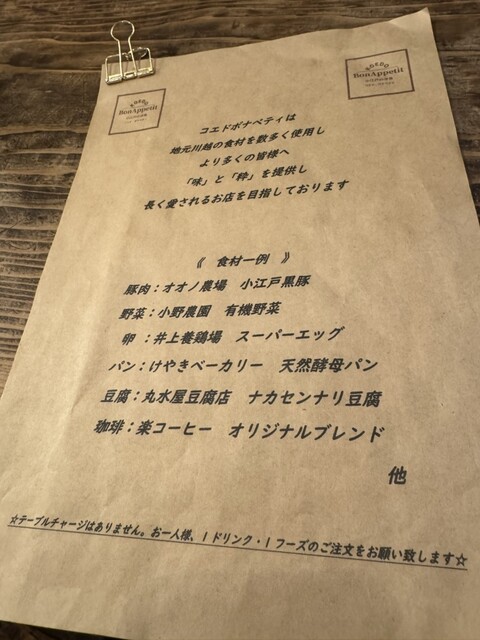 KOEDO
BonAppetit
KOEDO
BonAppetit
コエドボナペティは
地元川越の食材を数多く使用し
より多くの皆様へ
「味」と「粋」を提供し
長く愛されるお店を目指しております
《 食材一例 》
豚肉:オオノ農場 小江戸黒豚
野菜:小野農園 有機野菜
卵 :井上養鶏場 スーパーエッグ
パン:けやきベーカリー 天然酵母パン
豆腐:丸水屋豆腐店 ナカセンナリ豆腐
珈琲:楽コーヒー オリジナルブレンド
他
☆テーブルチャージはありません。お一人様、1ドリンク・1フーズのご注文をお願い致します☆